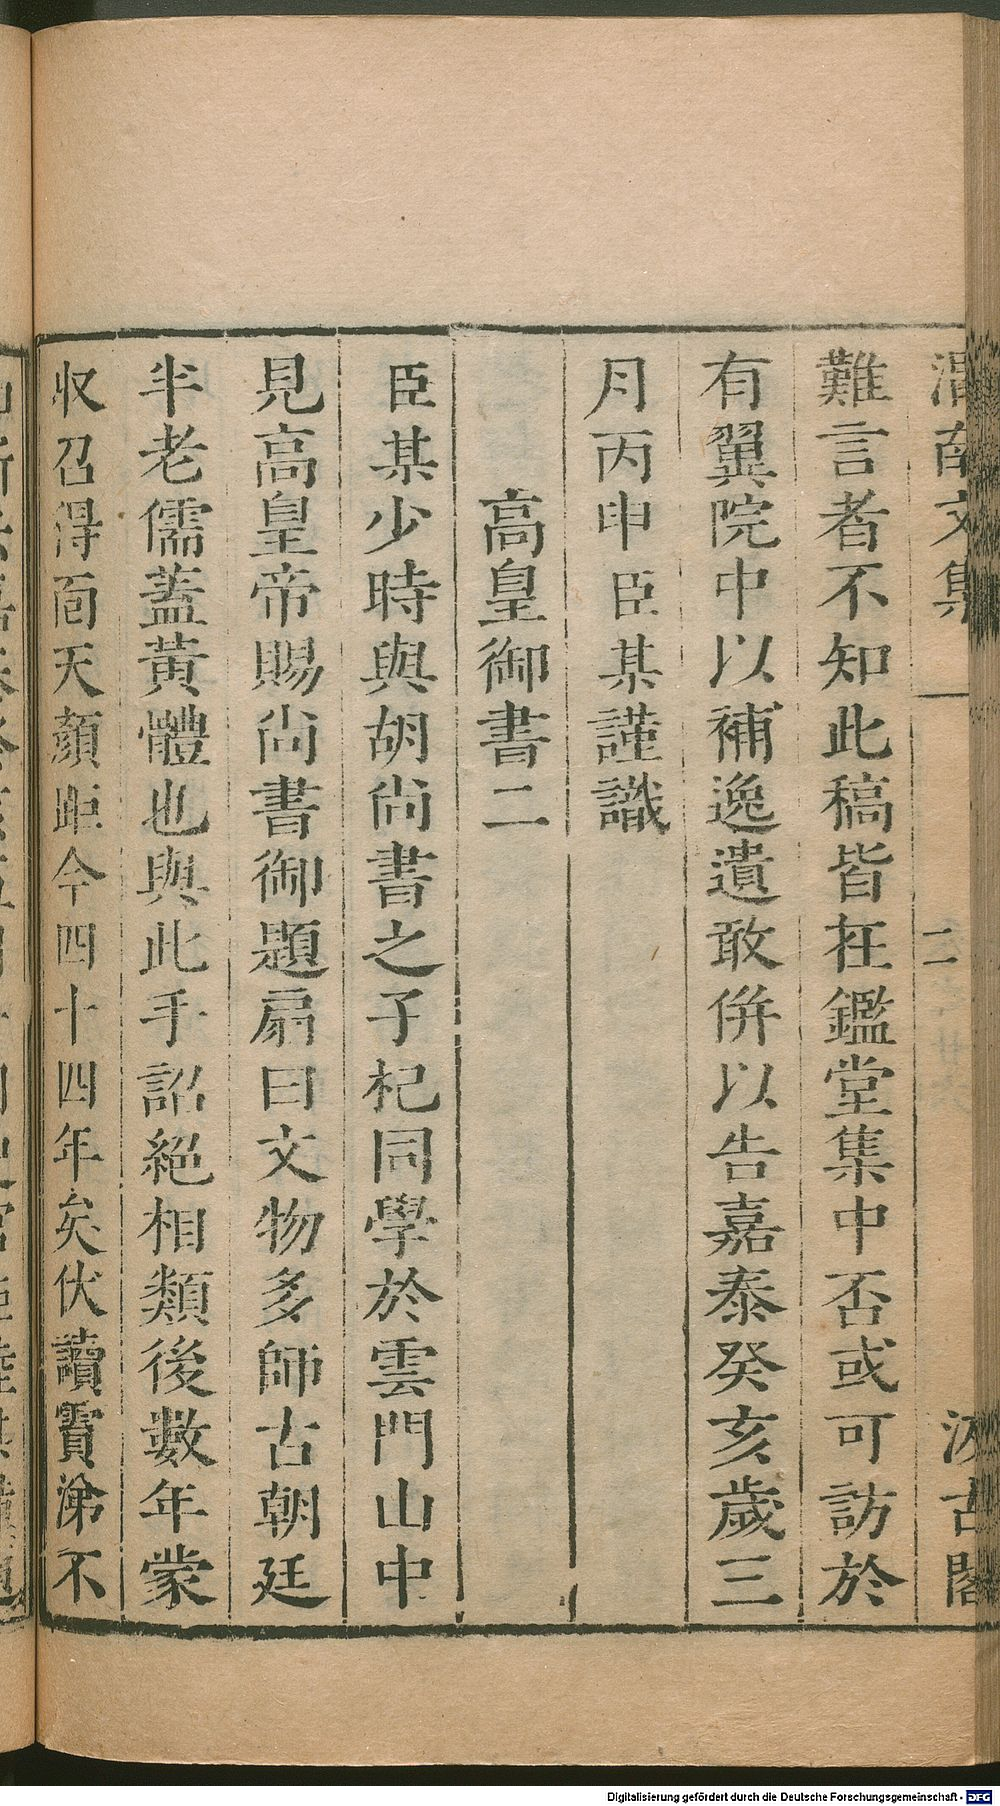 渭南文集
二
汲古閣
難言者不知此稿皆在鑑堂集中否或可訪於
有翼院中以補逸遺敢併以告嘉泰癸亥歲三
月丙申臣某謹識
高皇御書二
臣某少時與胡尚書之子杞同學於雲門山中
見高皇帝賜尚書御題扇曰文物多師古朝廷
半老儒蓋黃體也與此手詔絕相類後數年蒙
收召得面天顏距今四十四年矣伏讀霣涕不
Digitalisierung gefördert durch die Deutsche Forschungsgemeinschaft - DFG